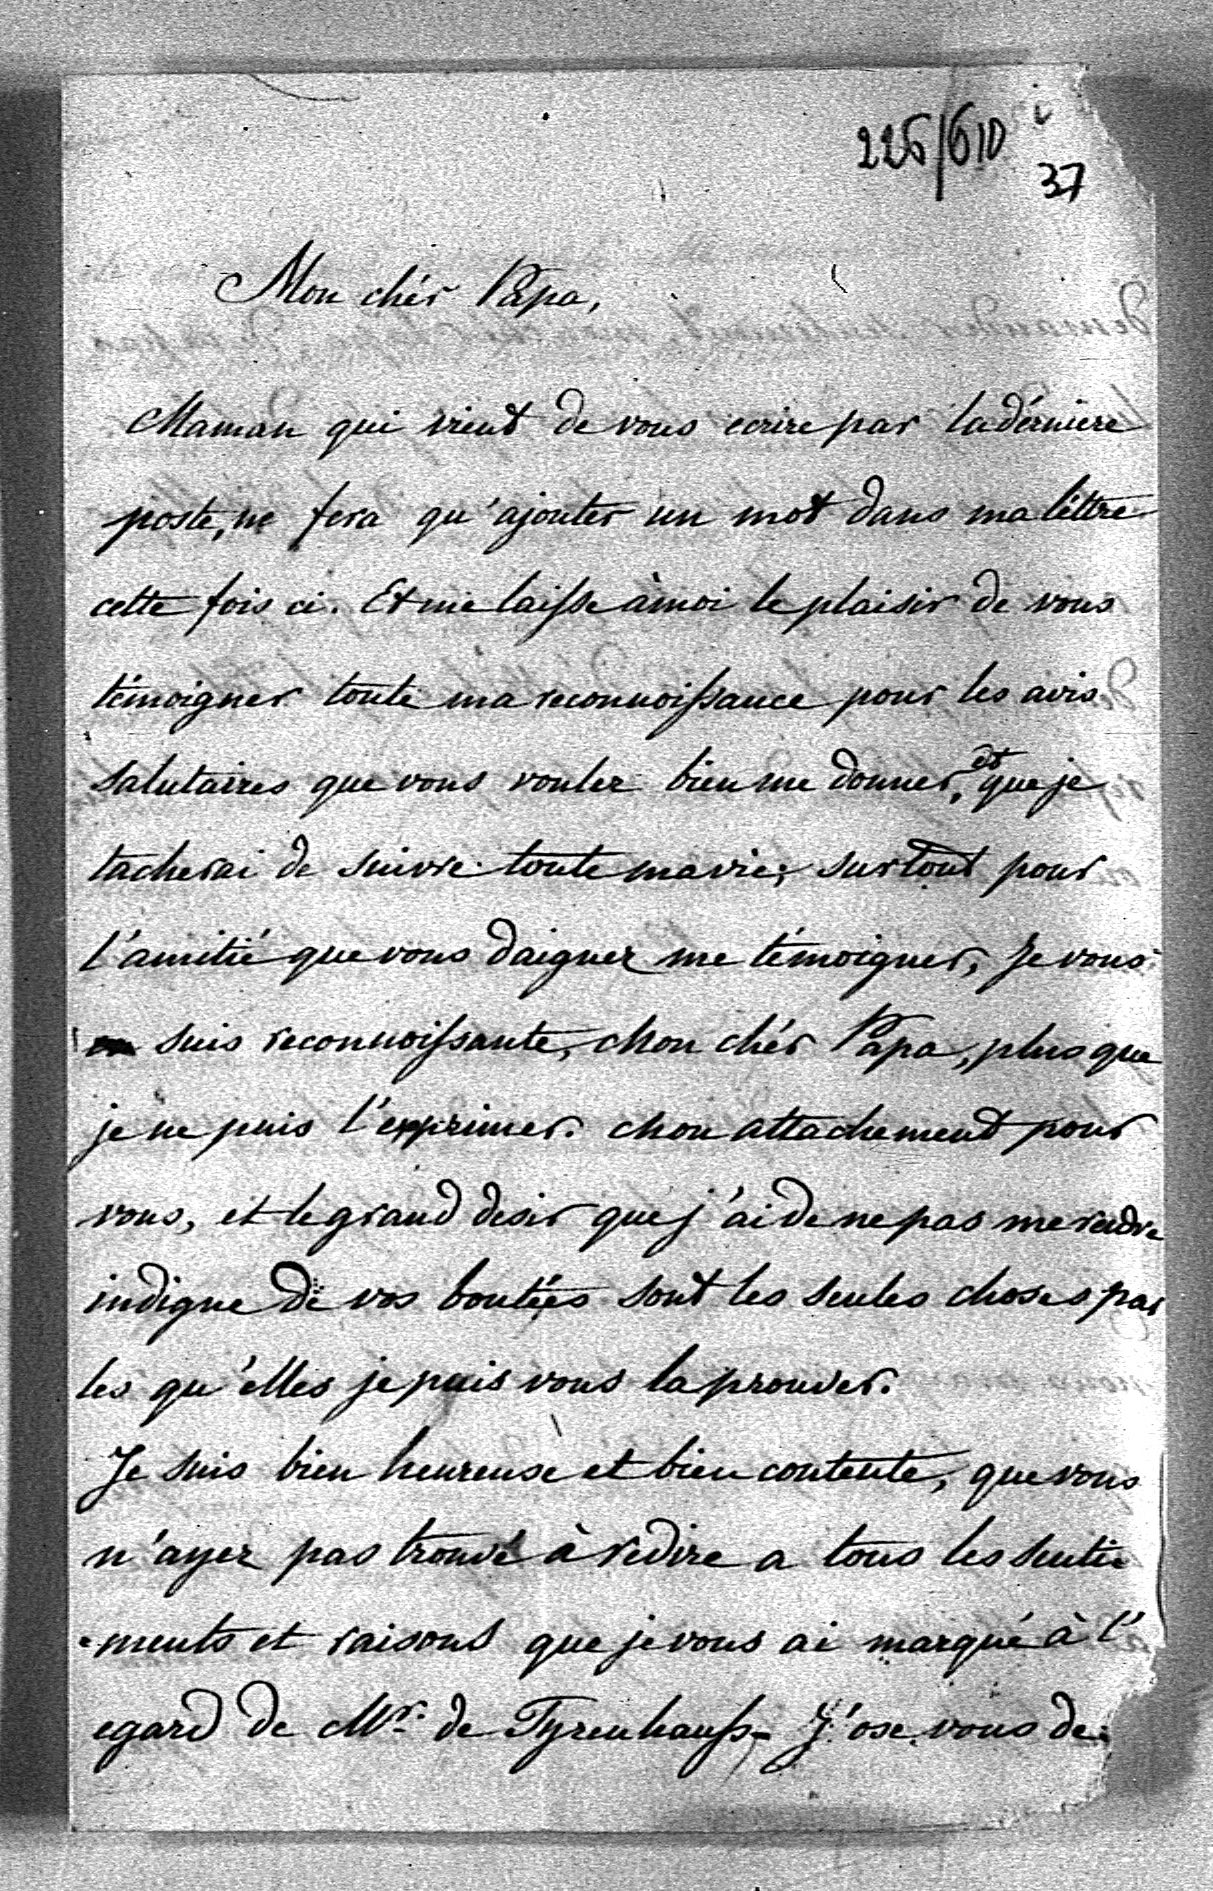 226/610
37
Mon chér Papa,
Maman qui vient de vous ecrire par la dérniere
poste, ne fera qu'ajouter un mot dans ma léttre
cette fois ci. Et me laisse à moi le plaisir de vous
témoigner toute ma reconnoissance pour les avis
salutaires que vous voulez bien me donner, et que je
tacherai de suivre toute ma vie; surtout pour
l'amitié que vous daignez me témoigner, Je vous
en suis reconnoissante, Mon chér Papa, plus que
je ne puis l'exprimer. Mon attachement pour
vous, et le grand desir que j'ai de ne pas me rendre
indigne de vos bontées sont les seules choses par
les qu'elles je puis vous la prouver.
Je suis bien heureuse et bien contente, que vous
n'ayez pas trouvé à redire a tous les senti
ments et raisons que je vous ai marqué à l'
egard de Mr. de Tyrenhauss- J'ose vous de